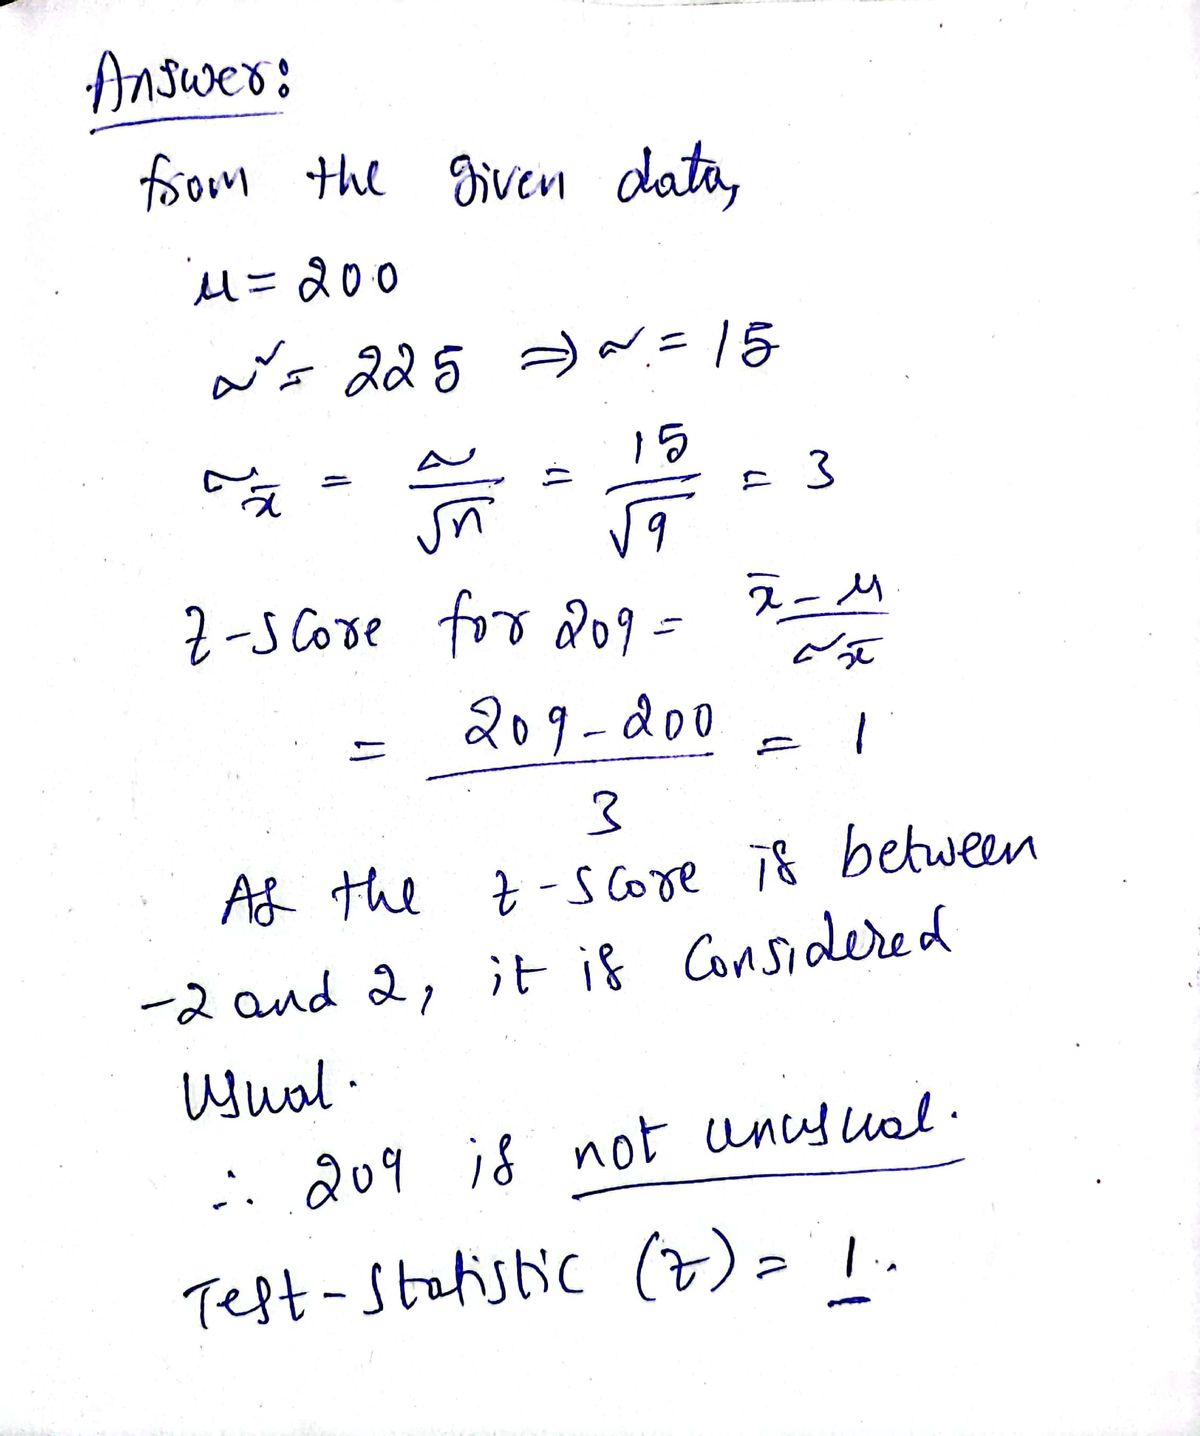 Answer:
from the given data,
μ = 200
σ² = 225 ⇒ σ = 15
σx̄ = σ/√n = 15/√9 = 3
z-score for 209 = x̄ - μ/σx̄
= 209 - 200/3 = 1
As the z-score is between
-2 and 2, it is Considered
Usual.
∴ 209 is not unusual.
Test-Statistic (z) = 1.